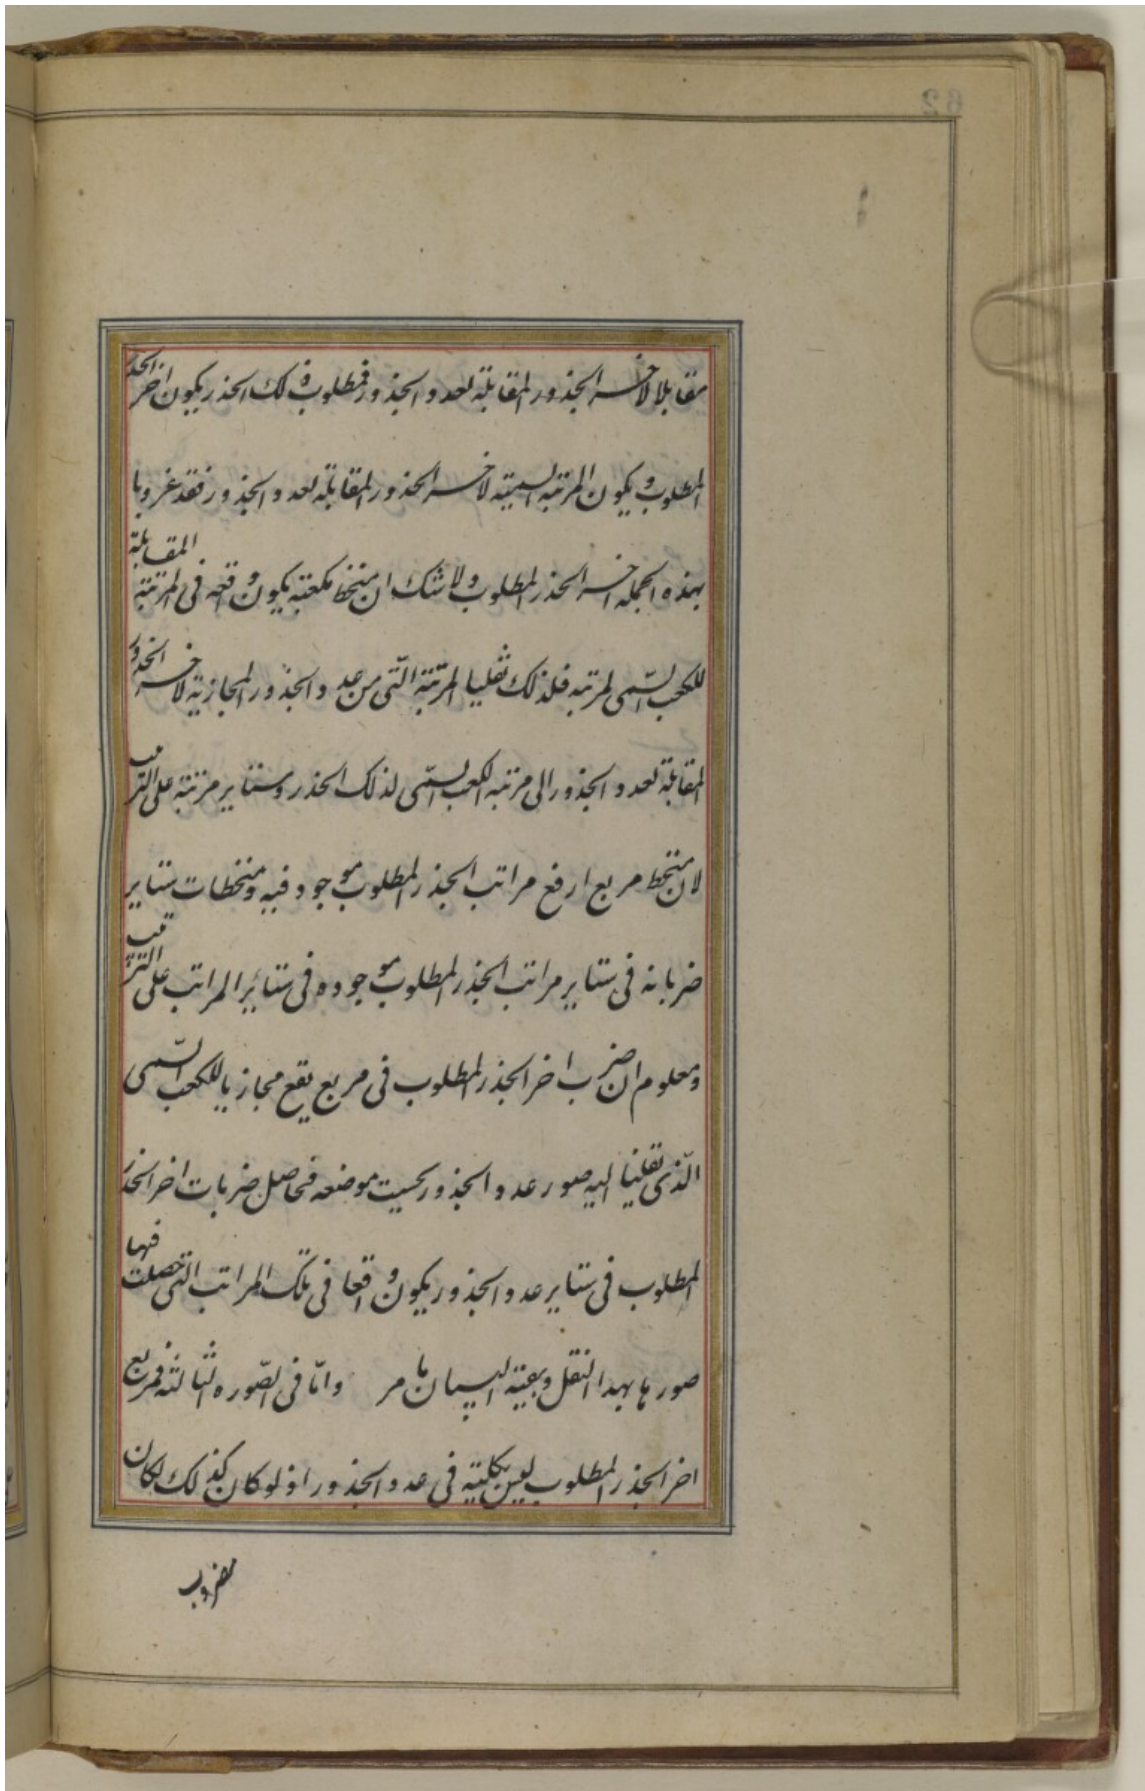 مقابلا لاخر الجذور المقابلة لعدد الجذور فمطلوب ذلك الجذر يكون اخر الجذر
المطلوب و يكون المرتبه السميته لاخر الجذور المقابلة لعدد الجذور فقد
بهذه الجمله اخر الجذر المطلوب ولا شك ان منحط مكعبته يكون واقعه فى المرتبته المقابلة
للكعب السّمى لمرتبه فلذلك نقلنا المرتبة الّتى من عدد الجذور المجازية لاخر الجذور
المقابلة لعدد الجذور الى مرتبه الكعب السّمى لذلك الجذر وستاير مرتبته على الترتيب
لان منحط مربع ارفع مراتب الجذر المطلوب موجود فيه ومنحطات ستاير
ضرباته فى ستاير مراتب الجذر المطلوب موجوده فى ستائر المراتب على الترتيب
ومعلوم ان ضرب اخر الجذر المطلوب فى مربع يقع مجازيا للكعب السّمى
الّذى نقلنا اليه صور عدد الجذور بحسيت موضعه فحاصل ضربات اخر الجذر
المطلوب فى ستاير عدد الجذور يكون واقعا فى تلك المراتب التى حصلت فيها
صورها بهدا النقل وبقية البيان ما مر وامّا فى الصّوره الثالثه فمربع
اخر الجذر المطلوب ليس بكليته فى عدد الجذور اذ لو كان كذلك لكان
مضروب
62